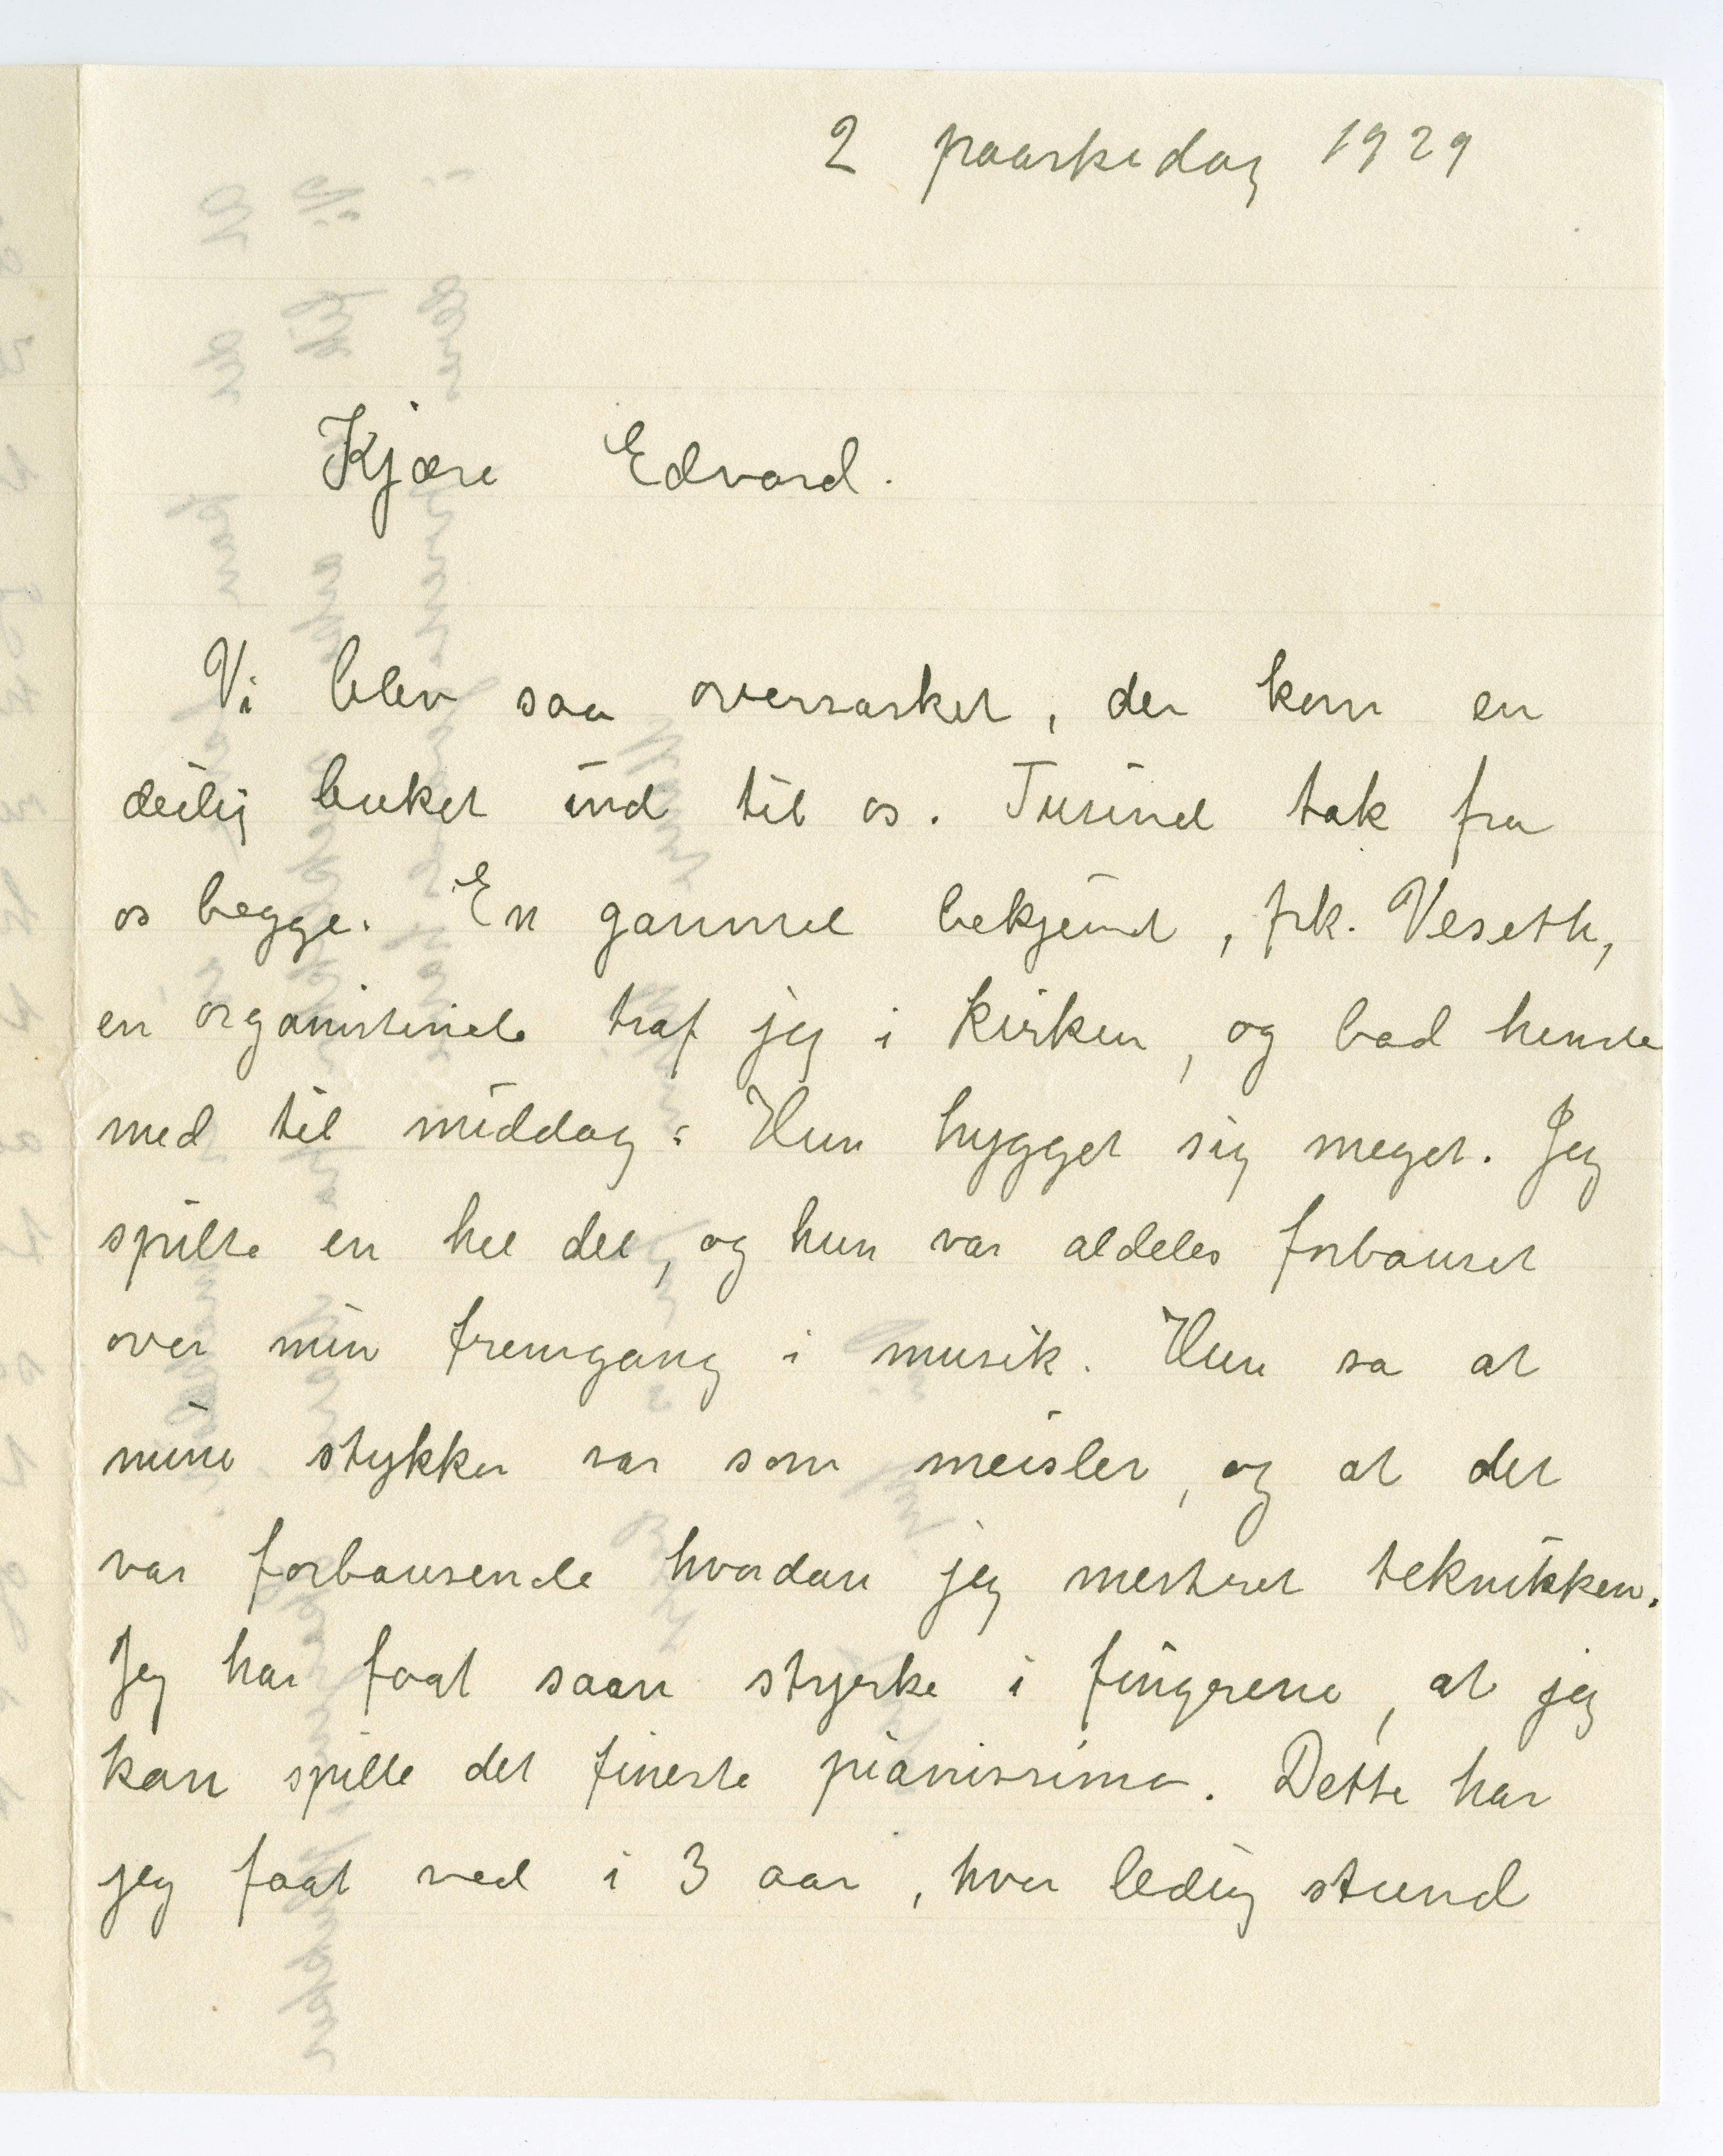 2 paaskedag 1929
Kjære Edvard.
Vi blev saa overrasket, der kom en
deilig buket ind til os. Tusind tak fra
os begge. En gammel bekjendt, frk. Veseth,
en organistinde traf jeg i kirken, og bad hende
med til middag: Hun hygget sig meget. Jeg
spilte en hel del, og hun var aldeles forbauset
over min fremgang i musik. Hun sa at
mine stykker var som meislet, og at det
var forbausende hvordan jeg mestret teknikken.
Jeg har faat saan styrke i fingrene, at jeg
kan spille det fineste pianissimo. Dette har
jeg faat ved i 3 aar, hver ledig stund